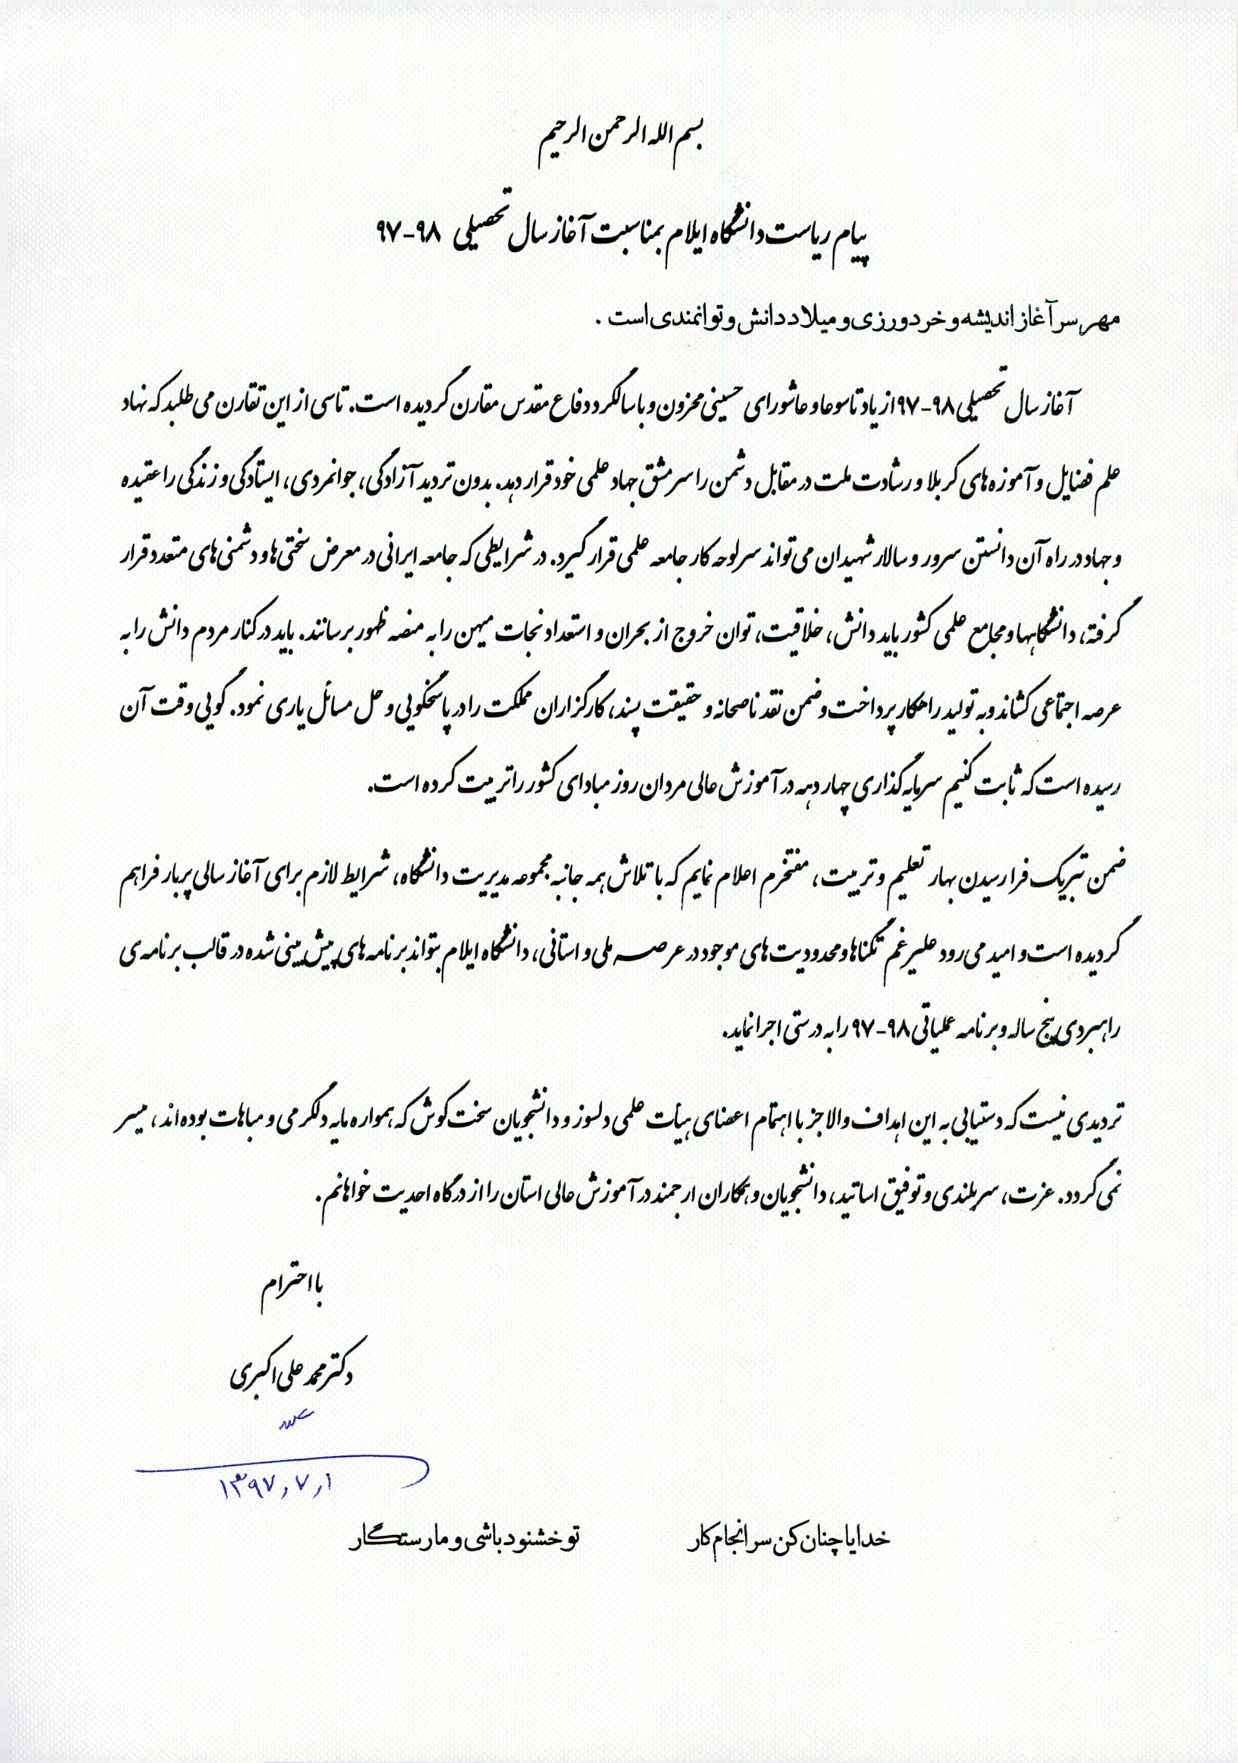 بسم الله الرحمن الرحیم
پیام ریاست دانشگاه ایلام بمناسبت آغاز سال تحصیلی ۹۸-۹۷
مهر سر آغاز اندیشه و خرد ورزی و میلاد دانش و توانمندی است .
آغاز سال تحصیلی ۹۸-۹۷ از یاد تاسوعا و عاشورای حسینی محزون و با سالگرد دفاع مقدس مقارن گردیده است. تاسی از این تقارن می طلبد که نهاد
علم فضایل و آموزه های کربلا و رشادت ملت در مقابل دشمن را سرمشق جهاد علمی خود قرار دهد. بدون تردید آزادگی، جوانمردی، ایستادگی و زندگی را عقیده
و جهاد در راه آن دانستن سرور و سالار شهیدان می تواند سرلوحه کار جامعه علمی قرار گیرد. در شرایطی که جامعه ایرانی در معرض سختی ها و دشمنی های متعدد قرار
گرفته، دانشگاهها و مجامع علمی کشور باید دانش، خلاقیت، توان خروج از بحران و استعداد نجات میهن را به منصه ظهور برسانند. باید در کنار مردم دانش را به
عرصه اجتماعی کشاند و به تولید راهکار پرداخت و ضمن نقد ناصحانه و حقیقت پسند، کارگزاران مملکت را در پاسخگویی و حل مسائل یاری نمود. گویی وقت آن
رسیده است که ثابت کنیم سرمایه گذاری چهار دهه در آموزش عالی مردان روز مبادای کشور را تربیت کرده است.
ضمن تبریک فرا رسیدن بهار تعلیم و تربیت، مفتخرم اعلام نمایم که با تلاش همه جانبه مجموعه مدیریت دانشگاه، شرایط لازم برای آغاز سالی پربار فراهم
گردیده است و امید می رود علیرغم تنگناها و محدودیت های موجود در عرصه ملی و استانی، دانشگاه ایلام بتواند برنامه های پیش بینی شده در قالب برنامه ی
راهبردی پنج ساله و برنامه عملیاتی ۹۸-۹۷ را به درستی اجرا نماید.
تردیدی نیست که دستیابی به این اهداف والا جز با اهتمام اعضای هیأت علمی دلسوز و دانشجویان سخت کوش که همواره مایه دلگرمی و مباهات بوده اند، میسر
نمی گردد. عزت، سربلندی و توفیق اساتید، دانشجویان و همکاران ارجمند در آموزش عالی استان را از درگاه احدیت خواهانم.
با احترام
دکتر محمد علی اکبری
۱۳۹۷,۷,۱
خدایا چنان کن سر انجام کار تو خشنود باشی و ما رستگار